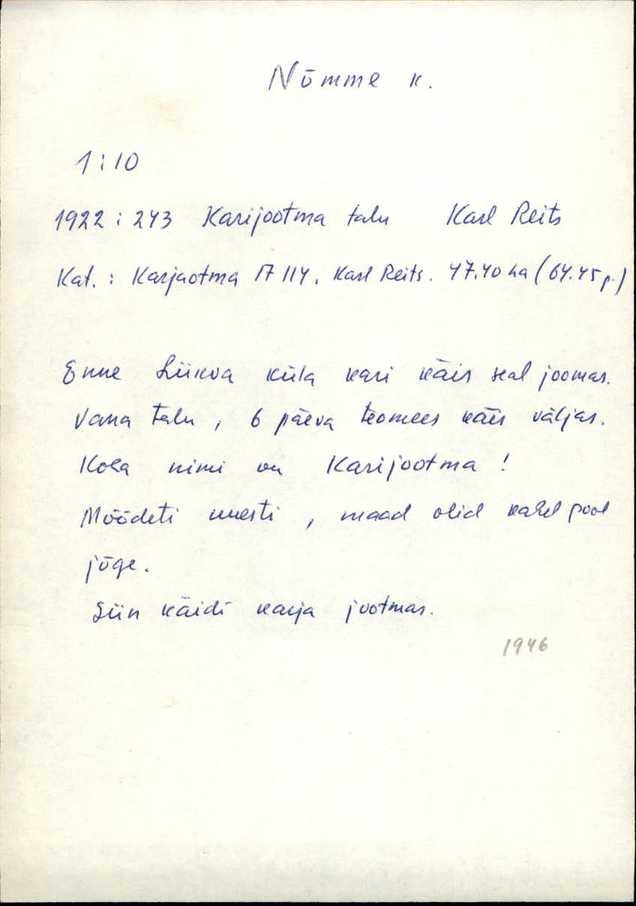 Nõmme k.
1:10
1922 : 243 Karijootma talu Karl Reits
Kat. : Karjaotma 114. Karl Reits. 47.40 ha (64.45 p.)
Enne Liikva küla kari käis seal joomas.
Vana talu, 6 päeva teomees käis väljas.
Koha nimi on Karijootma!
Mõõdeti uuesti, maad olid kahel pool
jõge.
Siin käidi karja jootmas.
1946